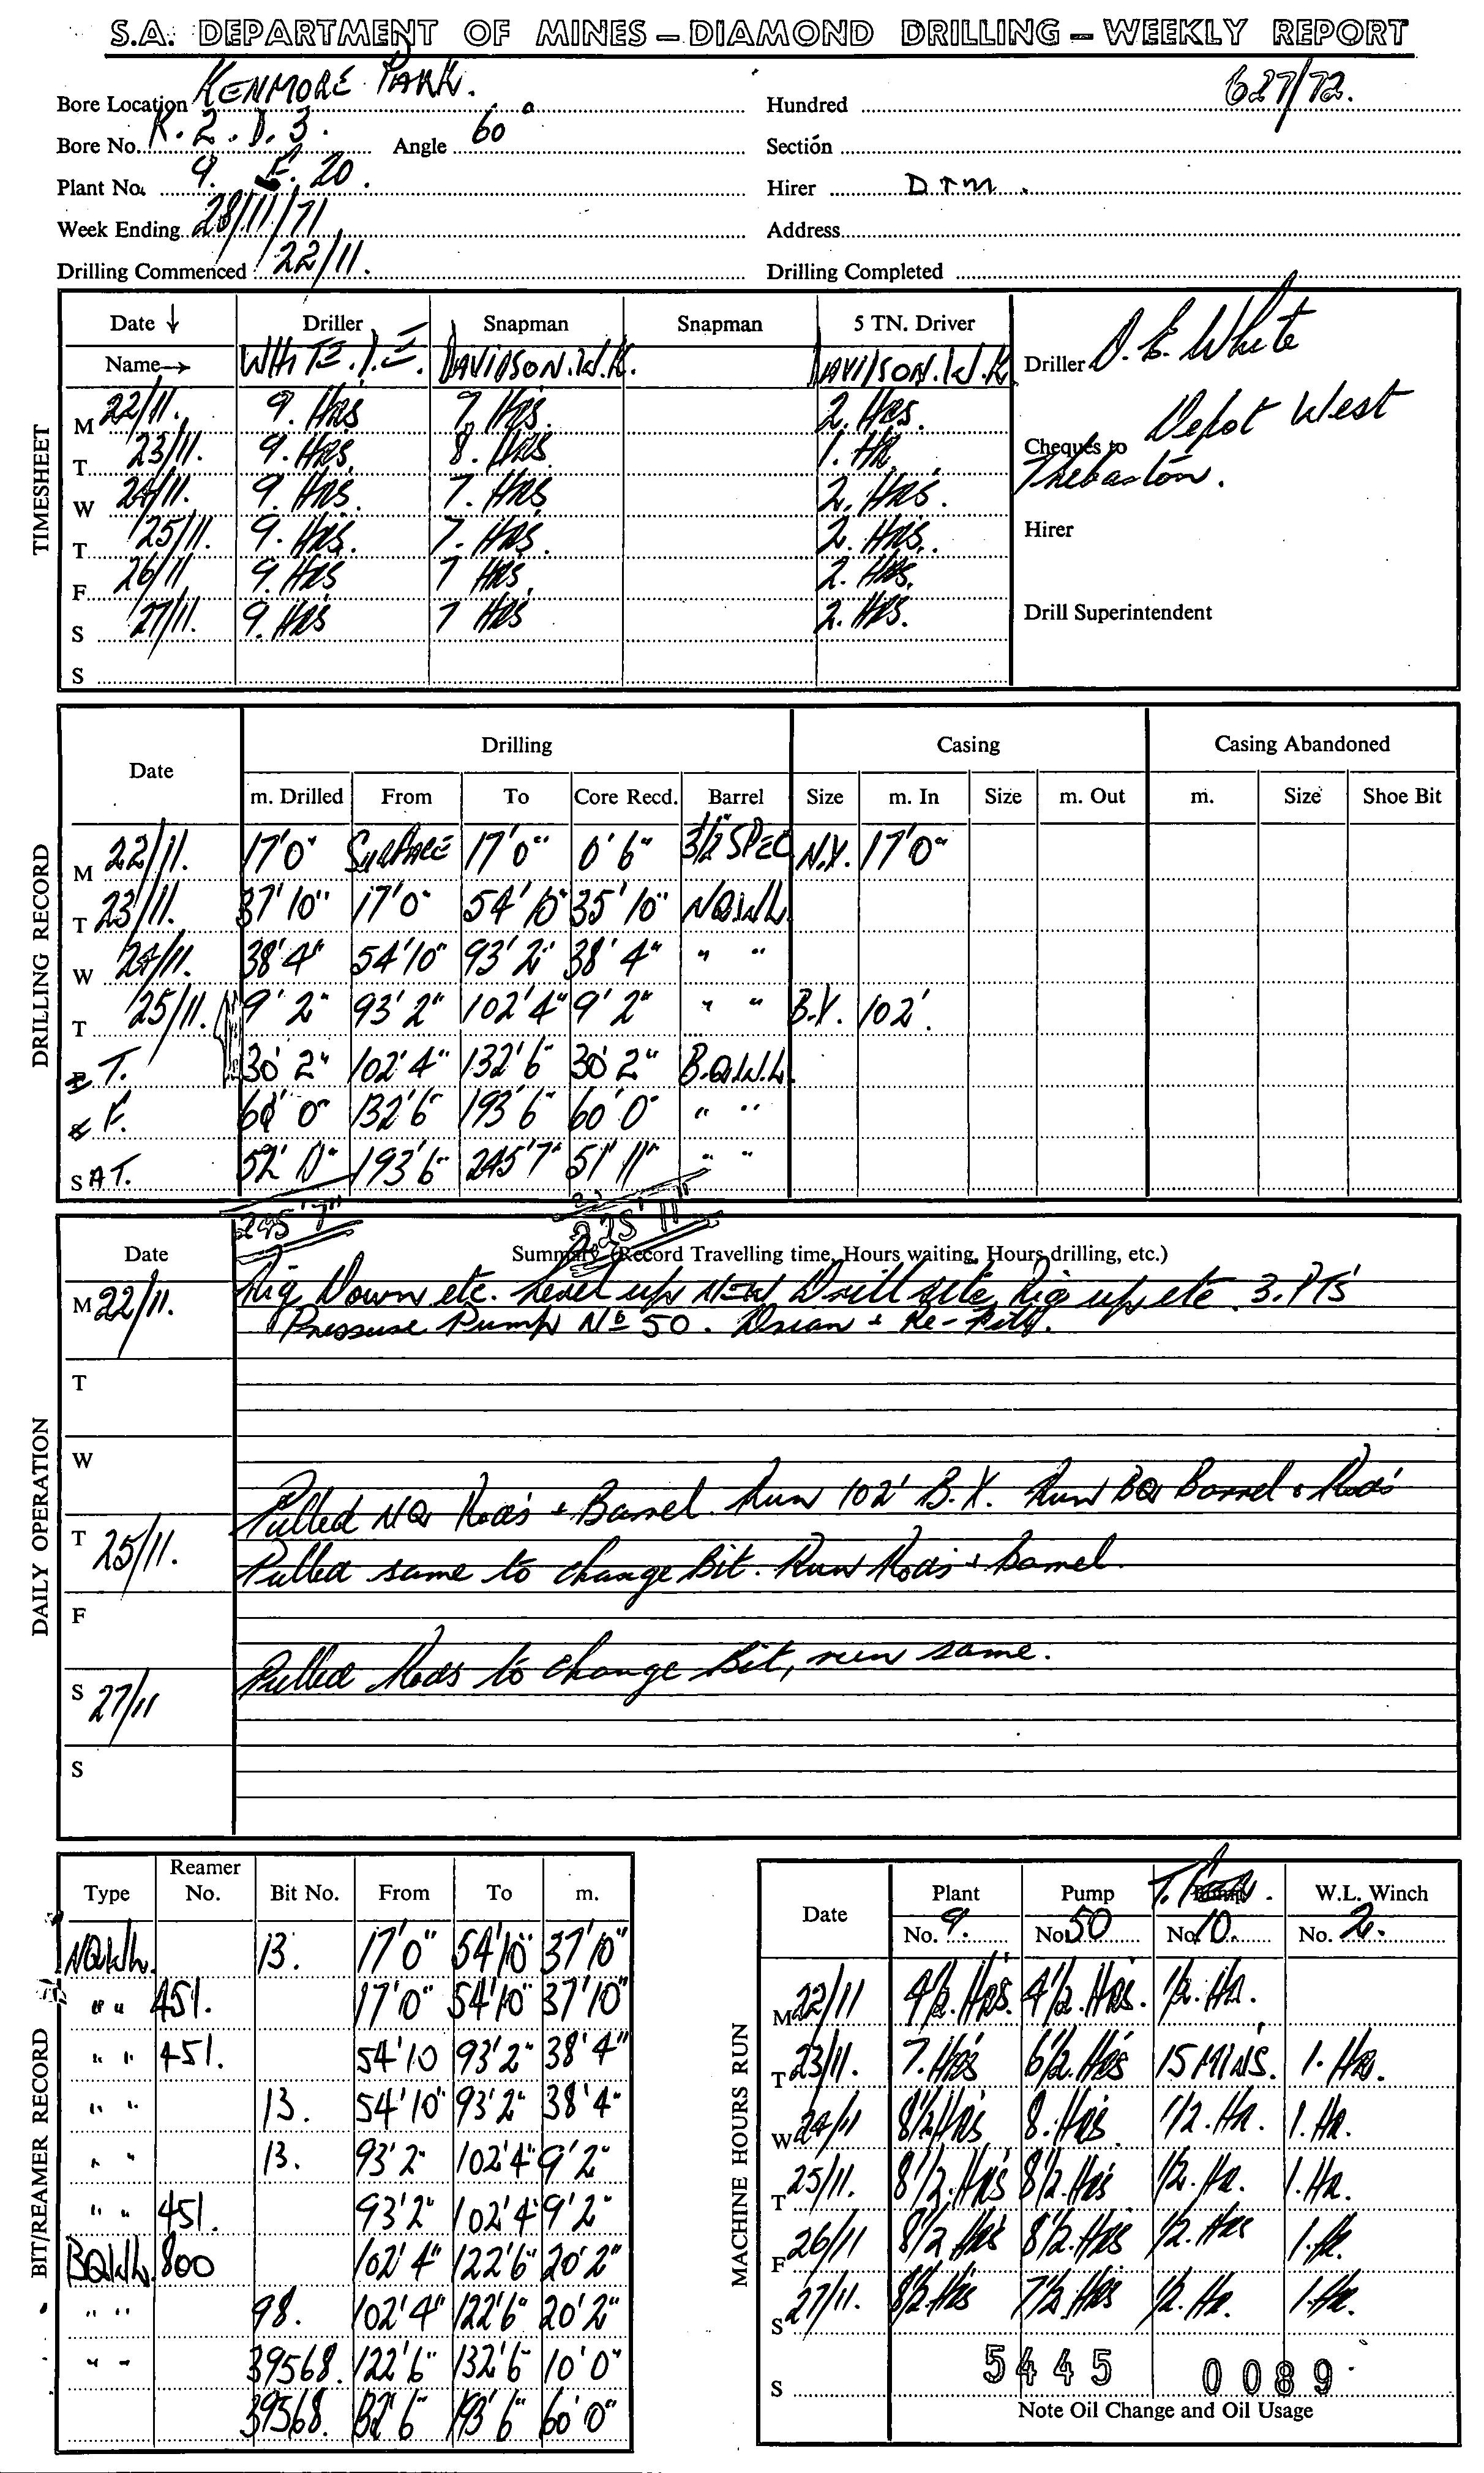 S.A. DEPARTMENT OF MINES — DIAMOND DRILLING — WEEKLY REPORT
627/72.
Bore Location KENMORE PARK. Hundred
Bore No. K.2.D.3. Angle 60° Section
Plant No. 9. F. 20. Hirer D T M.
Week Ending 28/11/71 Address
Drilling Commenced 22/11. Drilling Completed
TIMESHEET
Date ↓ Driller Snapman Snapman 5 TN. Driver
Name→ WHITE.D.E. DAVIDSON.W.K. DAVIDSON.W.K Driller D. E. White
M 22/11. 9. Hrs 7. Hrs. 2. Hrs.
T 23/11. 9. Hrs. 8. Hrs 1. Hr.
W 24/11. 9. Hrs. 7. Hrs 2. Hrs.
T 25/11. 9. Hrs. 7. Hrs. 2. Hrs.
F 26/11 9. Hrs 7 Hrs. 2. Hrs.
S 27/11. 9. Hrs 7 Hrs 2. Hrs.
S
Cheques to Depot West
Thebarton.
Hirer
Drill Superintendent
DRILLING RECORD
Date Drilling Casing Casing Abandoned
m. Drilled From To Core Recd. Barrel Size m. In Size m. Out m. Size Shoe Bit
M 22/11. 17'0" SURFACE 17'0" 0'6" 3½ SPEC N.X. 17'0"
T 23/11. 37'10" 17'0" 54'10" 35'10" NQ.W.L.
W 24/11. 38'4" 54'10" 93'2" 38'4" " "
T 25/11. 9'2" 93'2" 102'4" 9'2" " " B.X. 102'.
T. 30'2" 102'4" 132'6" 30'2" B.Q.W.L.
F. 60'0" 132'6" 193'6" 60'0" " "
SAT. 52'1" 193'6" 245'7" 51'11" " "
245'7" 225'11"
DAILY OPERATION
Date Summary (Record Travelling time, Hours waiting, Hours drilling, etc.)
M 22/11. Rig Down etc. Level up NEW Drill site, Rig up etc. 3. PTS
Pressure Pump No 50. Drain + Re-Fill.
T
W
Pulled NQ Rods + Barrel. Run 102' B.X. Run BQ Barrel + Rods
T 25/11. Pulled same to change Bit. Run Rods + Barrel.
F
S 27/11 Pulled Rods to change Bit, run same.
S
BIT/REAMER RECORD
Type Reamer No. Bit No. From To m.
NQW/L. 13. 17'0" 54'10" 37'10"
" " 451. 17'0" 54'10" 37'10"
" " 451. 54'10 93'2" 38'4"
" " 13. 54'10" 93'2" 38'4"
" " 13. 93'2" 102'4" 9'2"
" " 451. 93'2" 102'4" 9'2"
BQW/L. 800 102'4" 122'6" 20'2"
" " 98. 102'4" 122'6" 20'2"
" " 39568. 122'6" 132'6" 10'0"
39568. 132'6" 193'6" 60'0"
MACHINE HOURS RUN
Date Plant Pump W.L. Winch
No. 9. No. 50 No. 10. No. 2.
M 22/11 4½. Hrs. 4½. Hrs. ½. Hr.
T 23/11. 7. Hrs 6½. Hrs 15 MINS. 1. Hr.
W 24/11 8½ Hrs 8. Hrs. 1/2. Hr. 1. Hr.
T 25/11. 8½. Hrs 8½. Hrs ½. Hr. 1. Hr.
F 26/11 8½ Hrs 8½. Hrs ½. Hrs 1. Hr.
S 27/11. 8½. Hrs 7½. Hrs ½. Hr. 1. Hr.
S 5445 0089
Note Oil Change and Oil Usage